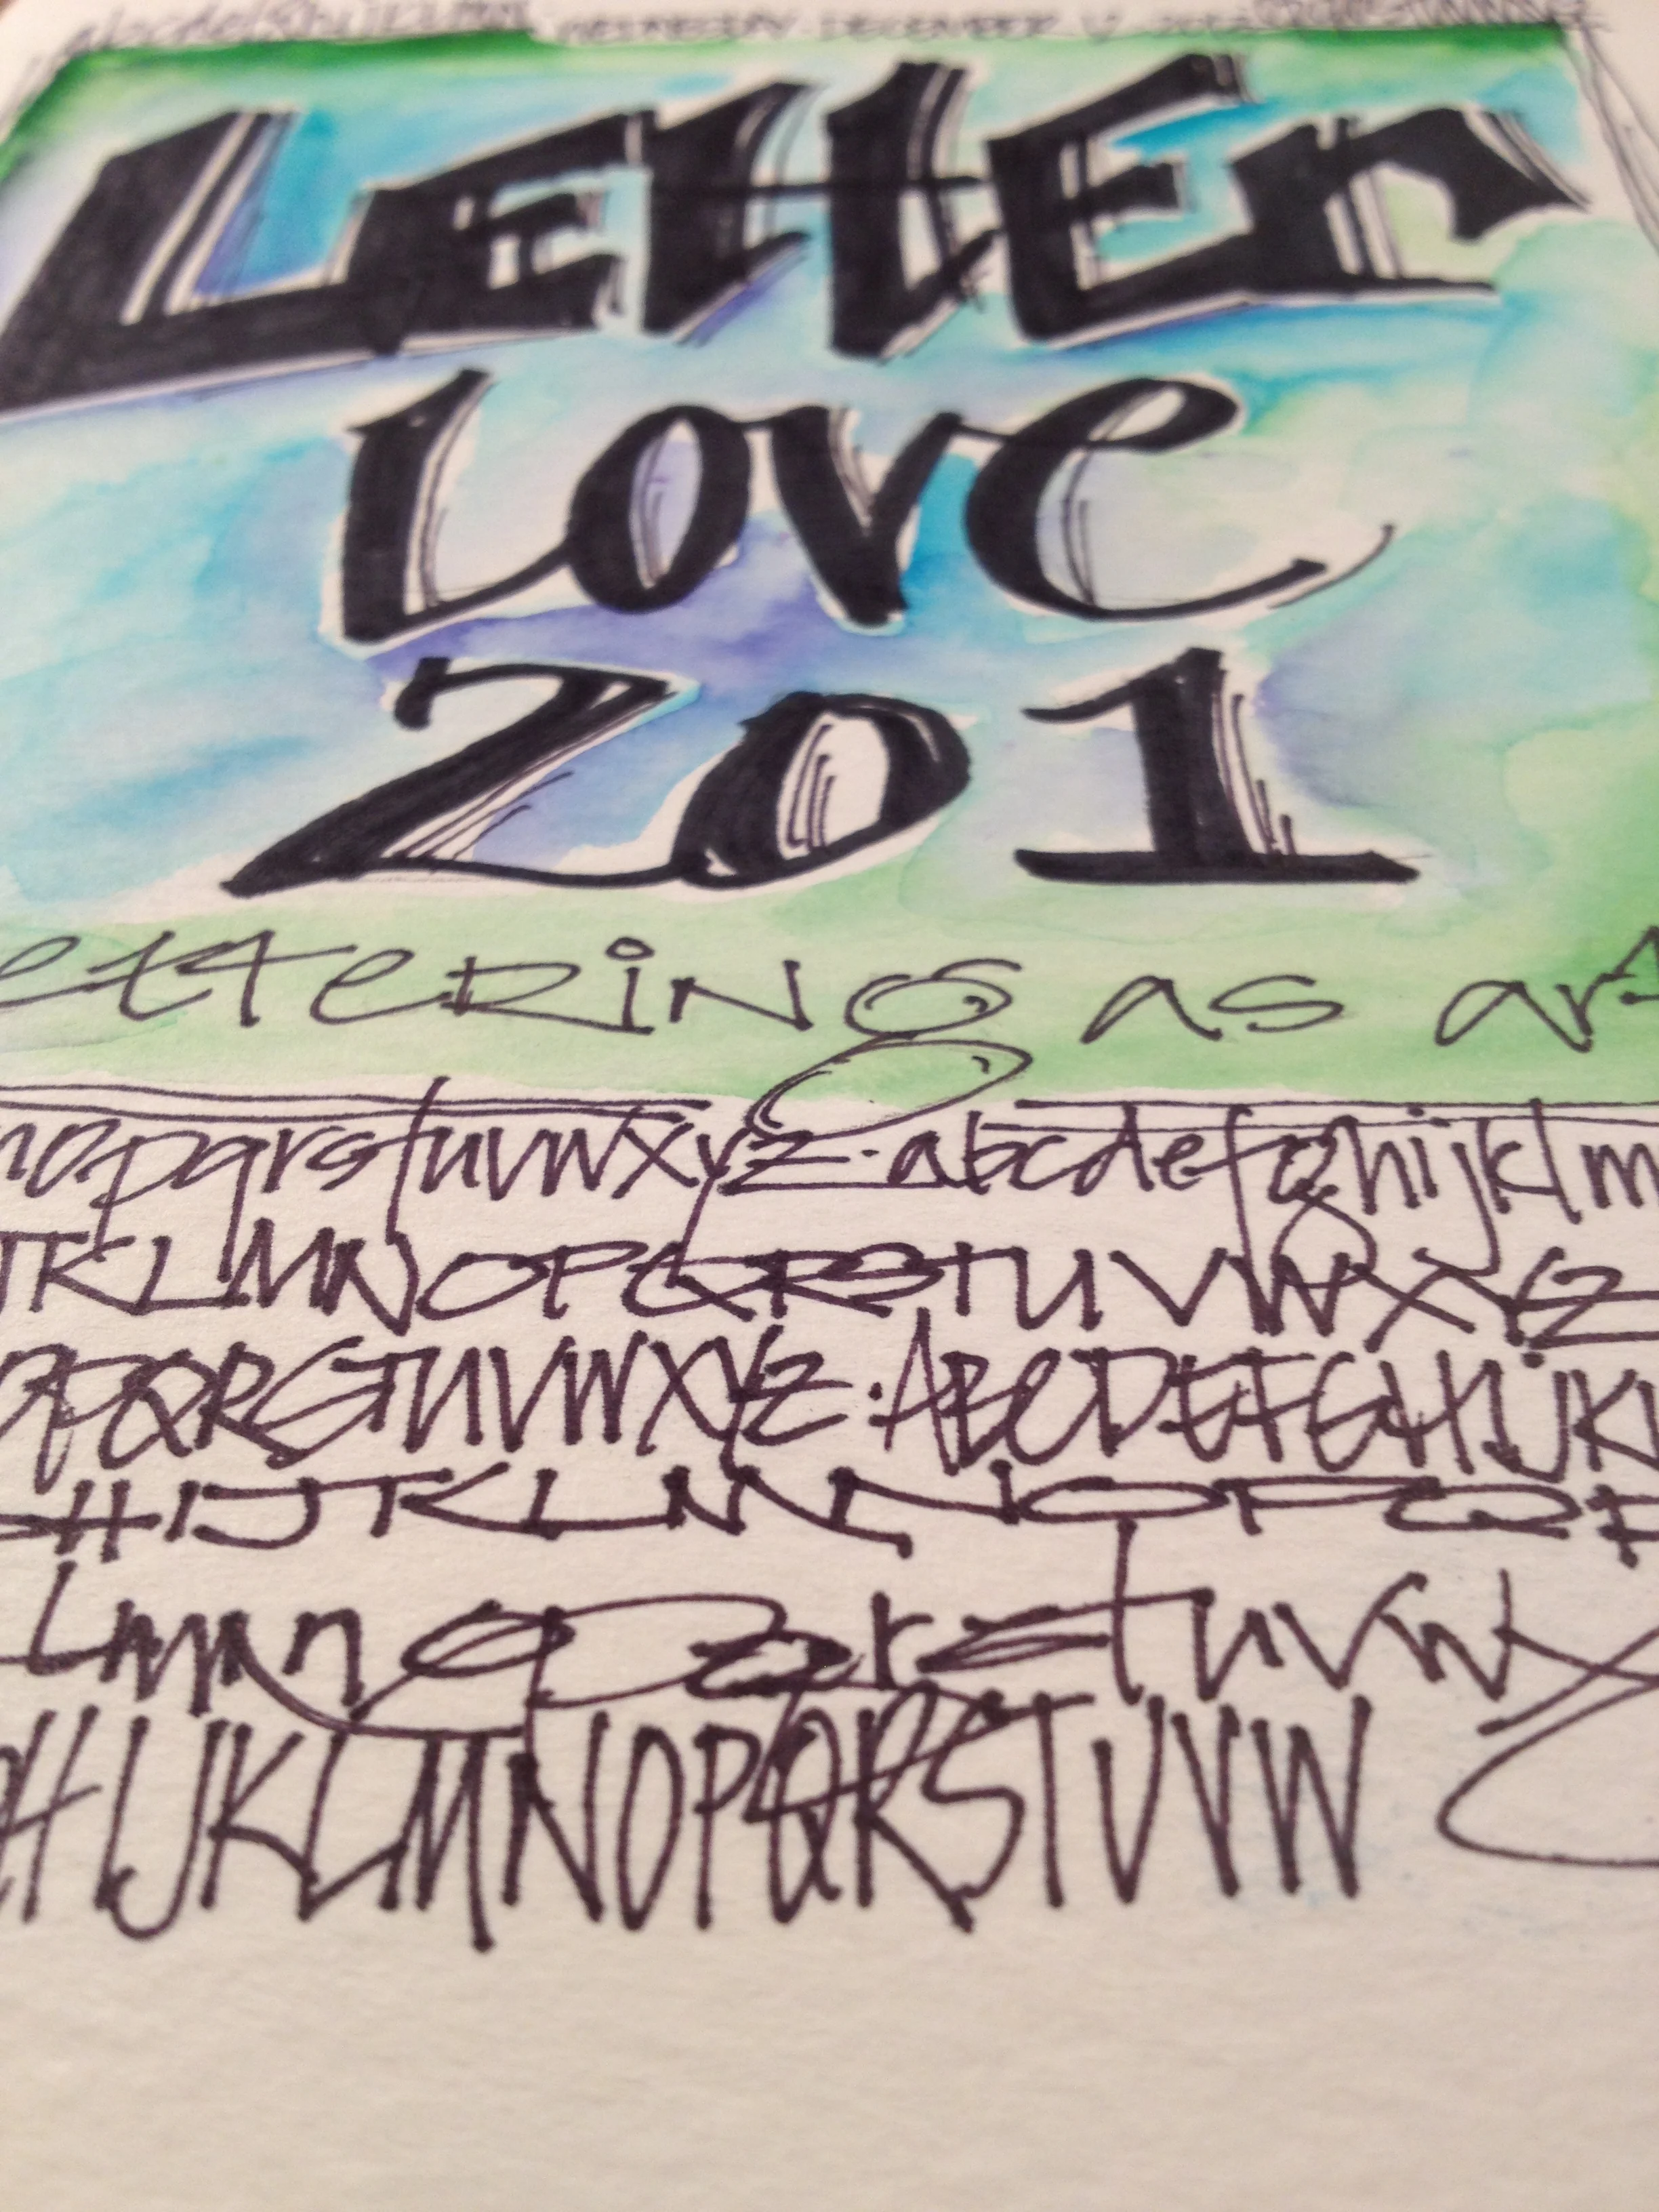 WEDNESDAY. DECEMBER
LETTEr
Love
201
ettering as art
nopqrstuvwxyz.abcdefghijklm
JKLMNOPQRSTUVWXYZ
OPQRSTUVWXYZ.ABCDEFGHIJKL
HIJKLMNOPQR
Lmnopqrstuvw
HIJKLMNOPQRSTUVW